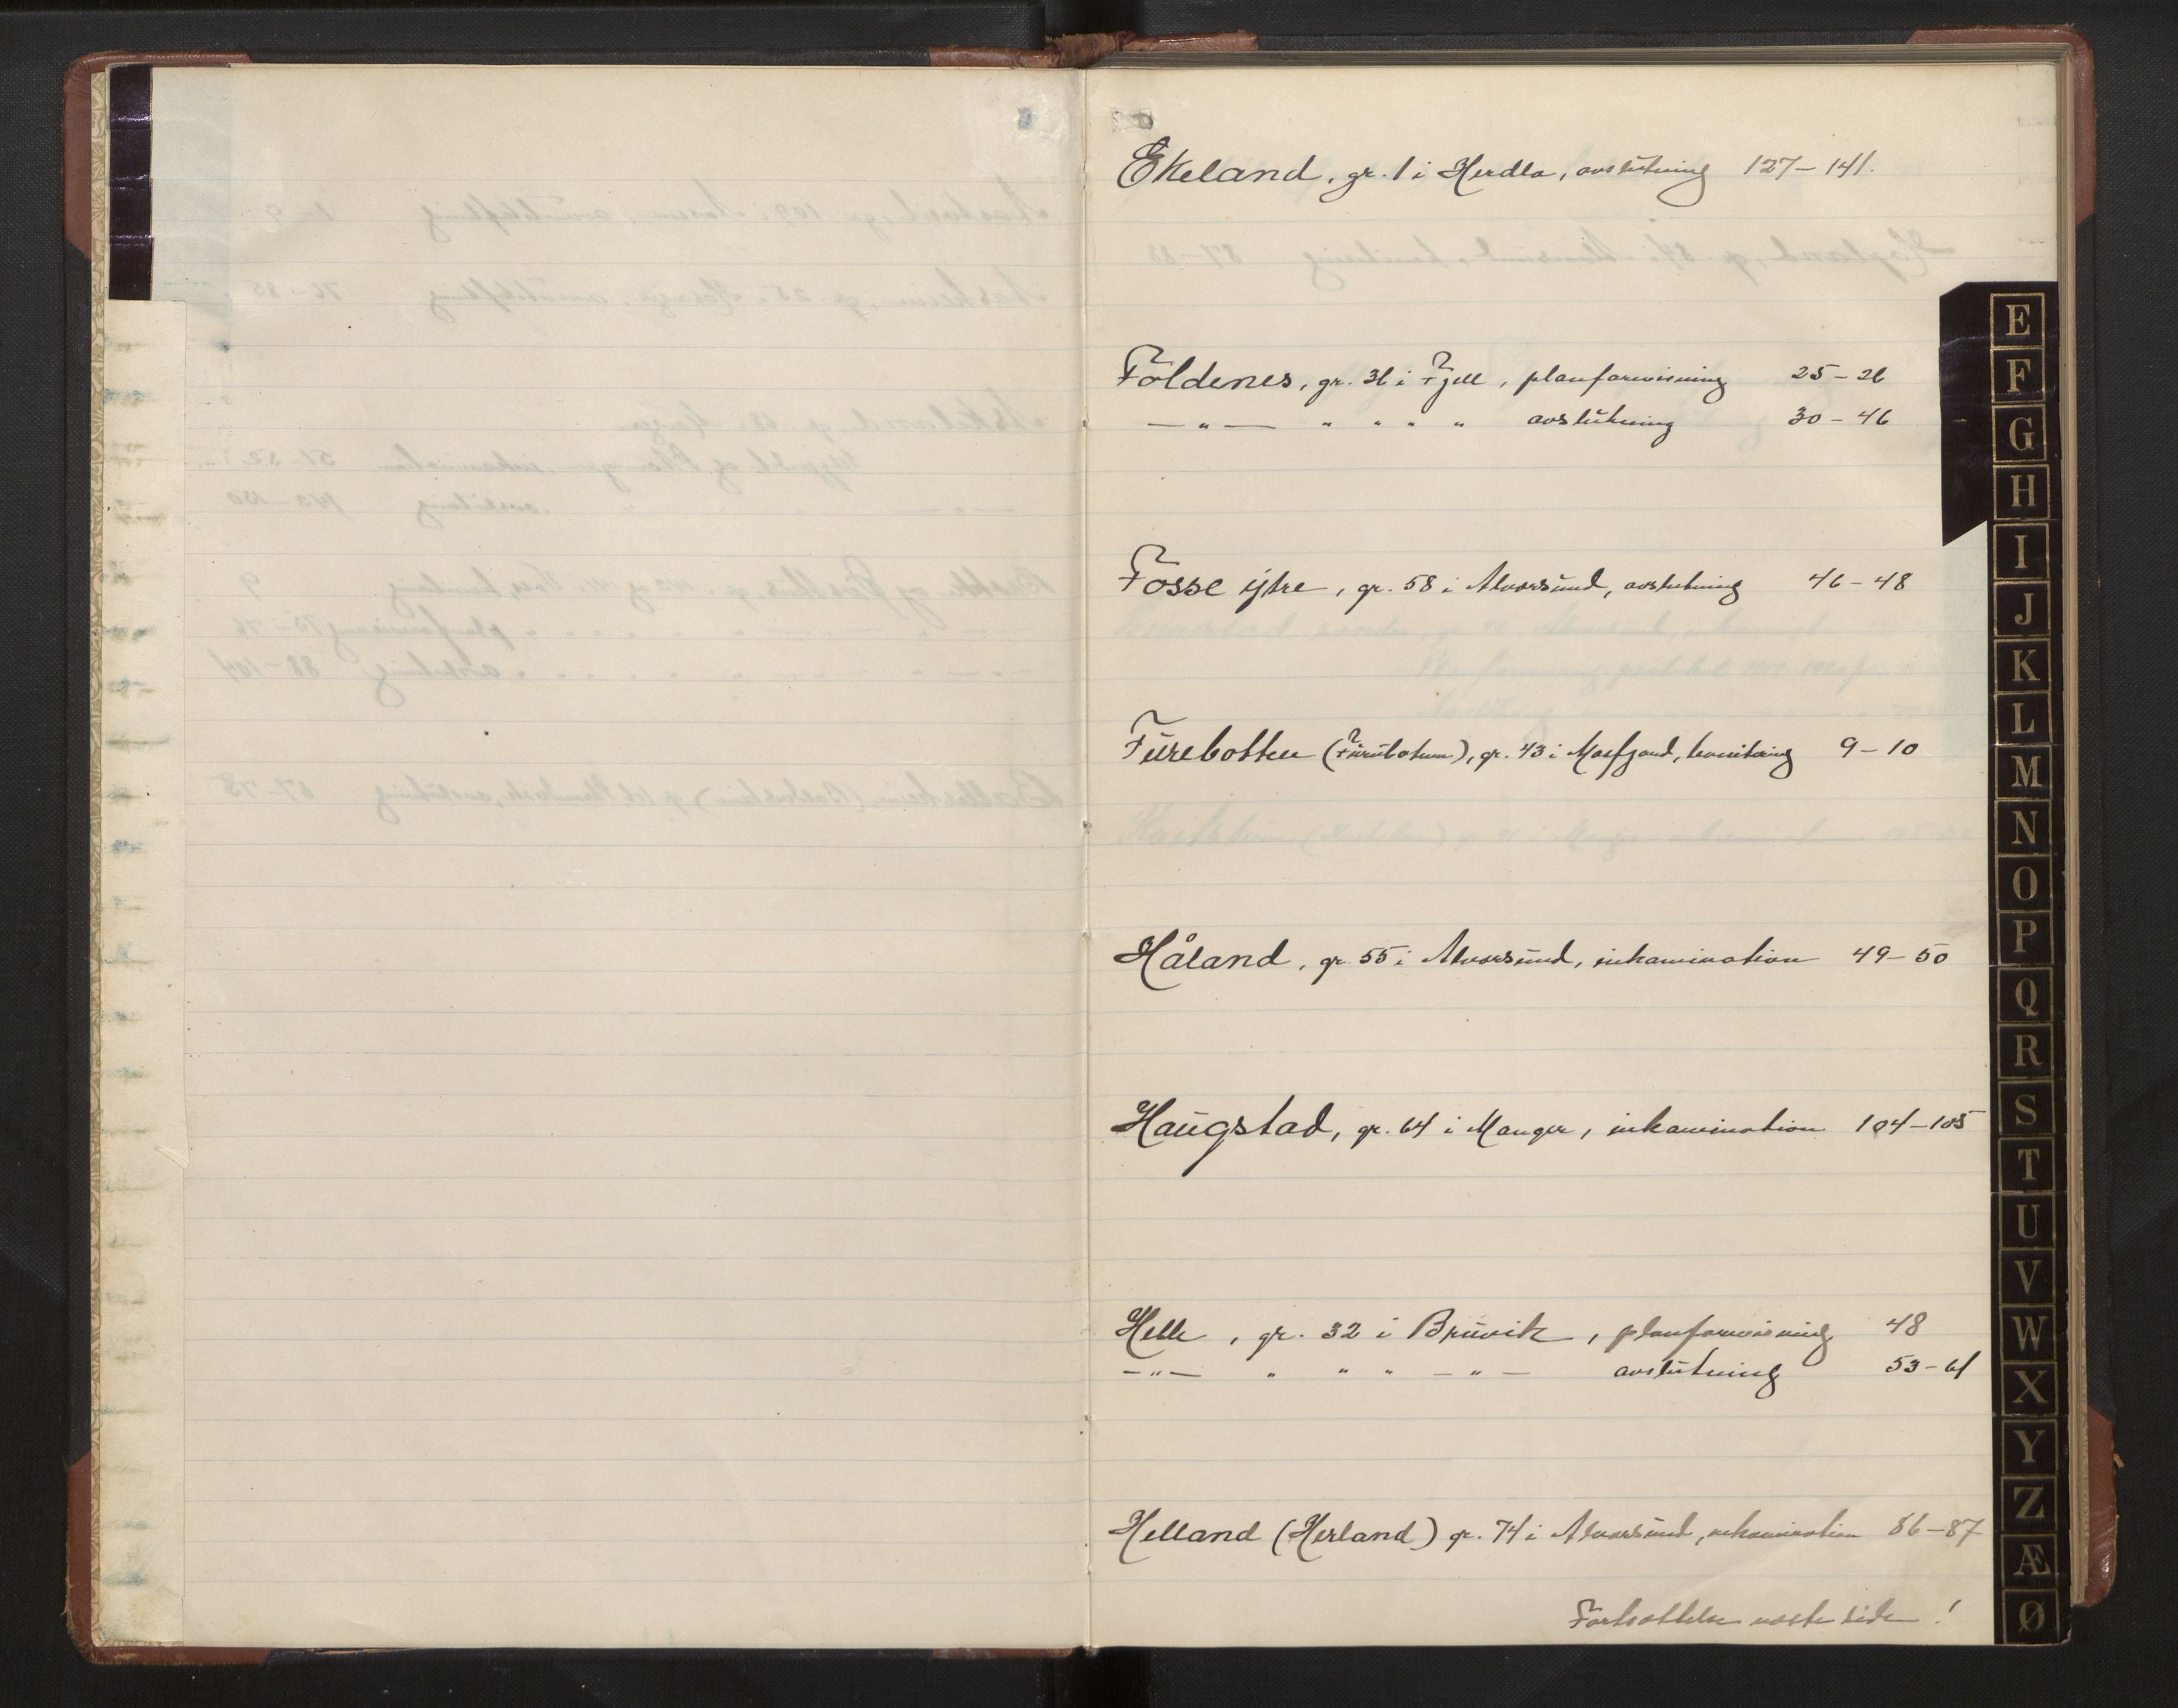 Ekeland, gr. 1 i Herdla, avslutning 127 – 141.
Foldenes, gr. 36 i Fjell, planforevisning 25 – 26
— " — " " " " avslutning 30 – 46
Fosse ytre, gr. 58 i Alversund, avslutning 46 – 48
Furebotten (Furubotnen), gr. 43 i Masfjord, bonitering 9 – 10
Håland, gr. 55 i Alversund, inkamination 49 – 50
Haugstad, gr. 64 i Manger, inkamination 104 – 105
Helle, gr. 32 i Bruvik, planforevisning 48
— " — " " " — " — avslutning 53 – 61
Helland (Herland) gr. 74 i Alversund, inkamination 86 – 87
Fortsættelse næste side!
E
F
G
H
I
J
K
L
M
N
O
P
Q
R
S
T
U
V
W
X
Y
Z
Æ
Ø